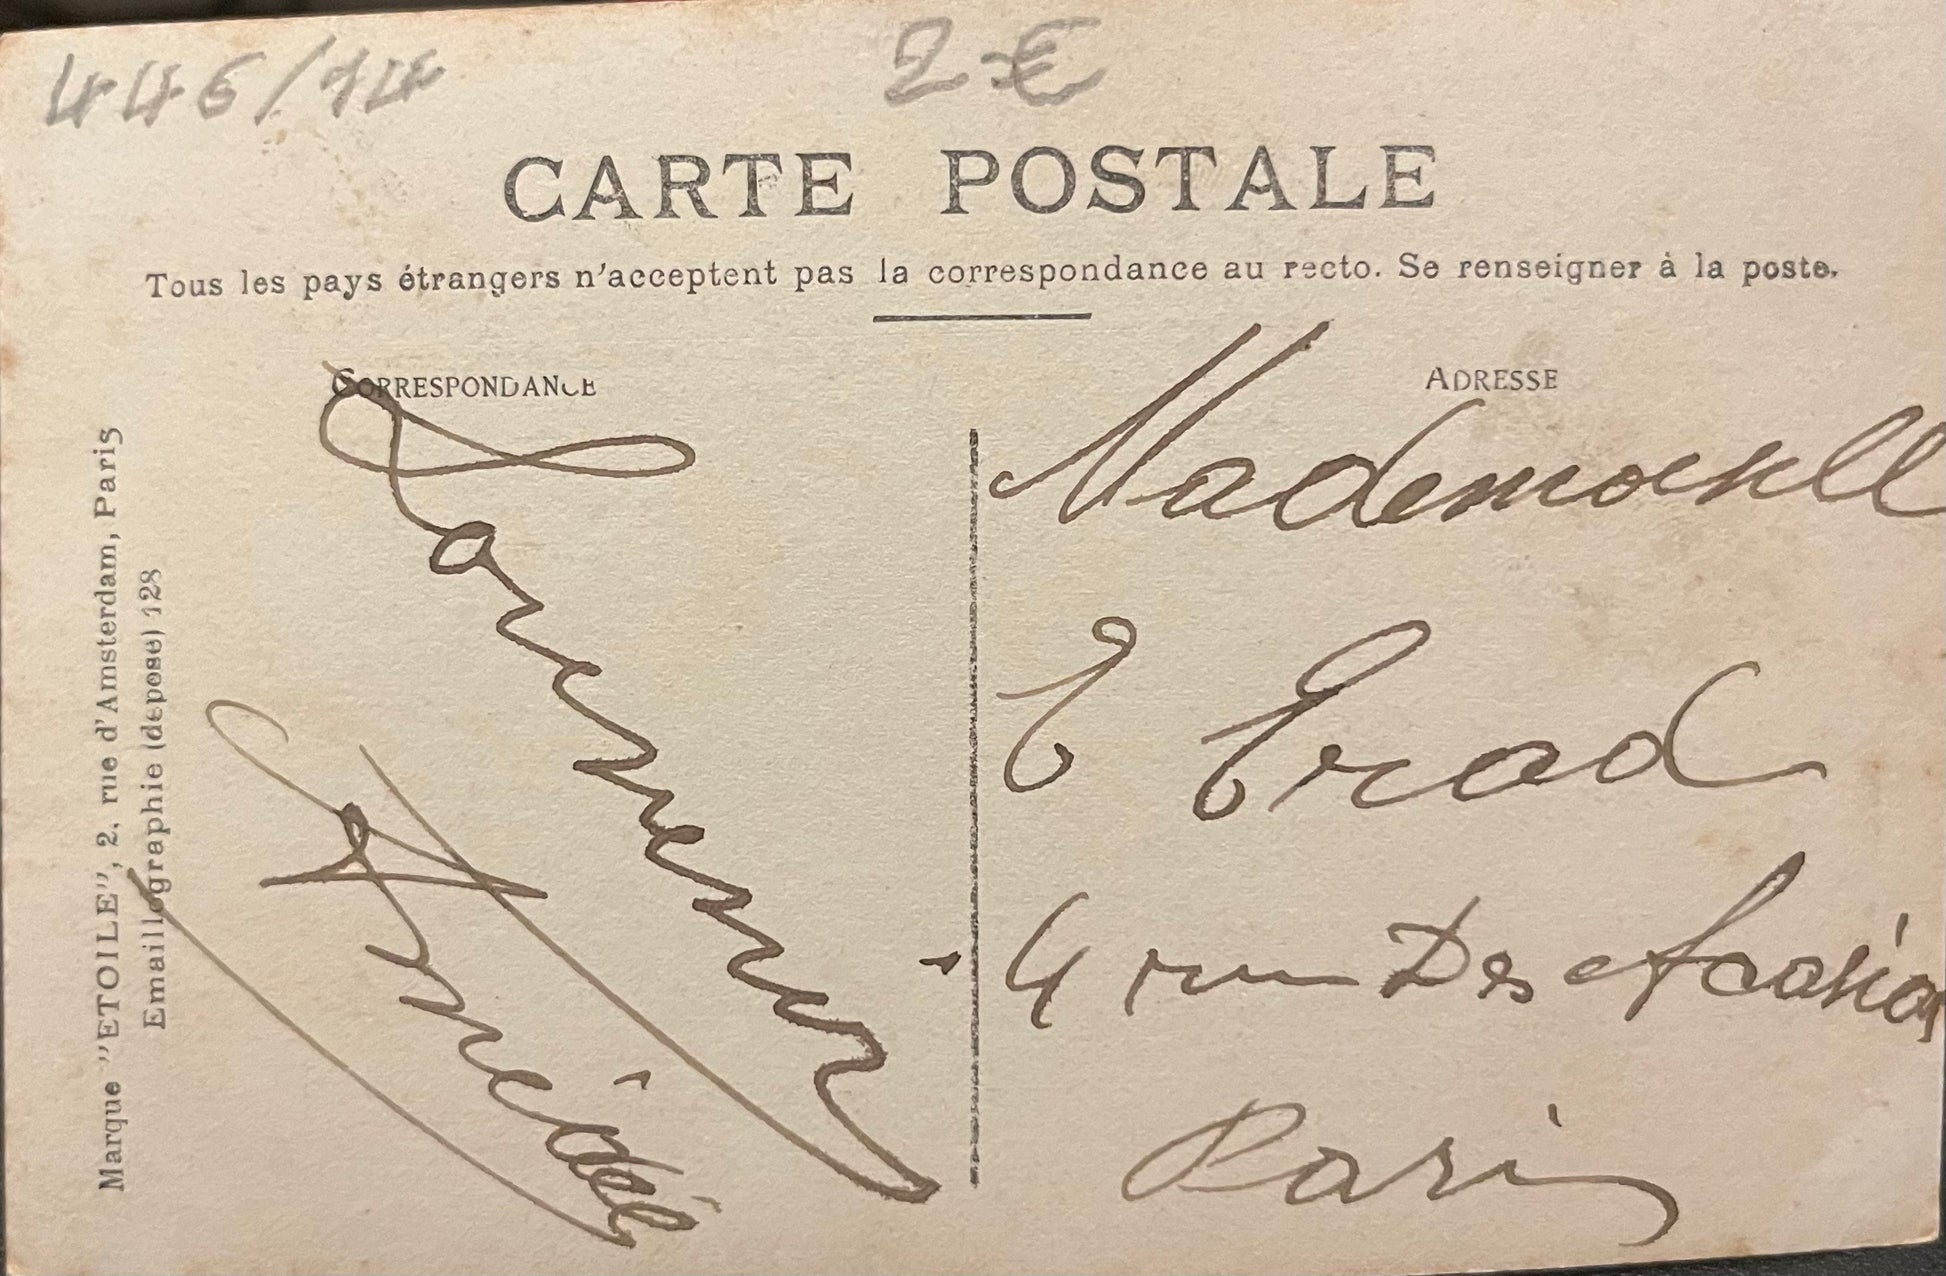 446/14
2 €
CARTE POSTALE
Tous les pays étrangers n'acceptent pas la correspondance au recto. Se renseigner à la poste.
CORRESPONDANCE
ADRESSE
Marque "ETOILE", 2, rue d'Amsterdam, Paris
Emaillographie (déposé) 128
Amédée
Mademoiselle
E
4 rue Des Acacias
Paris